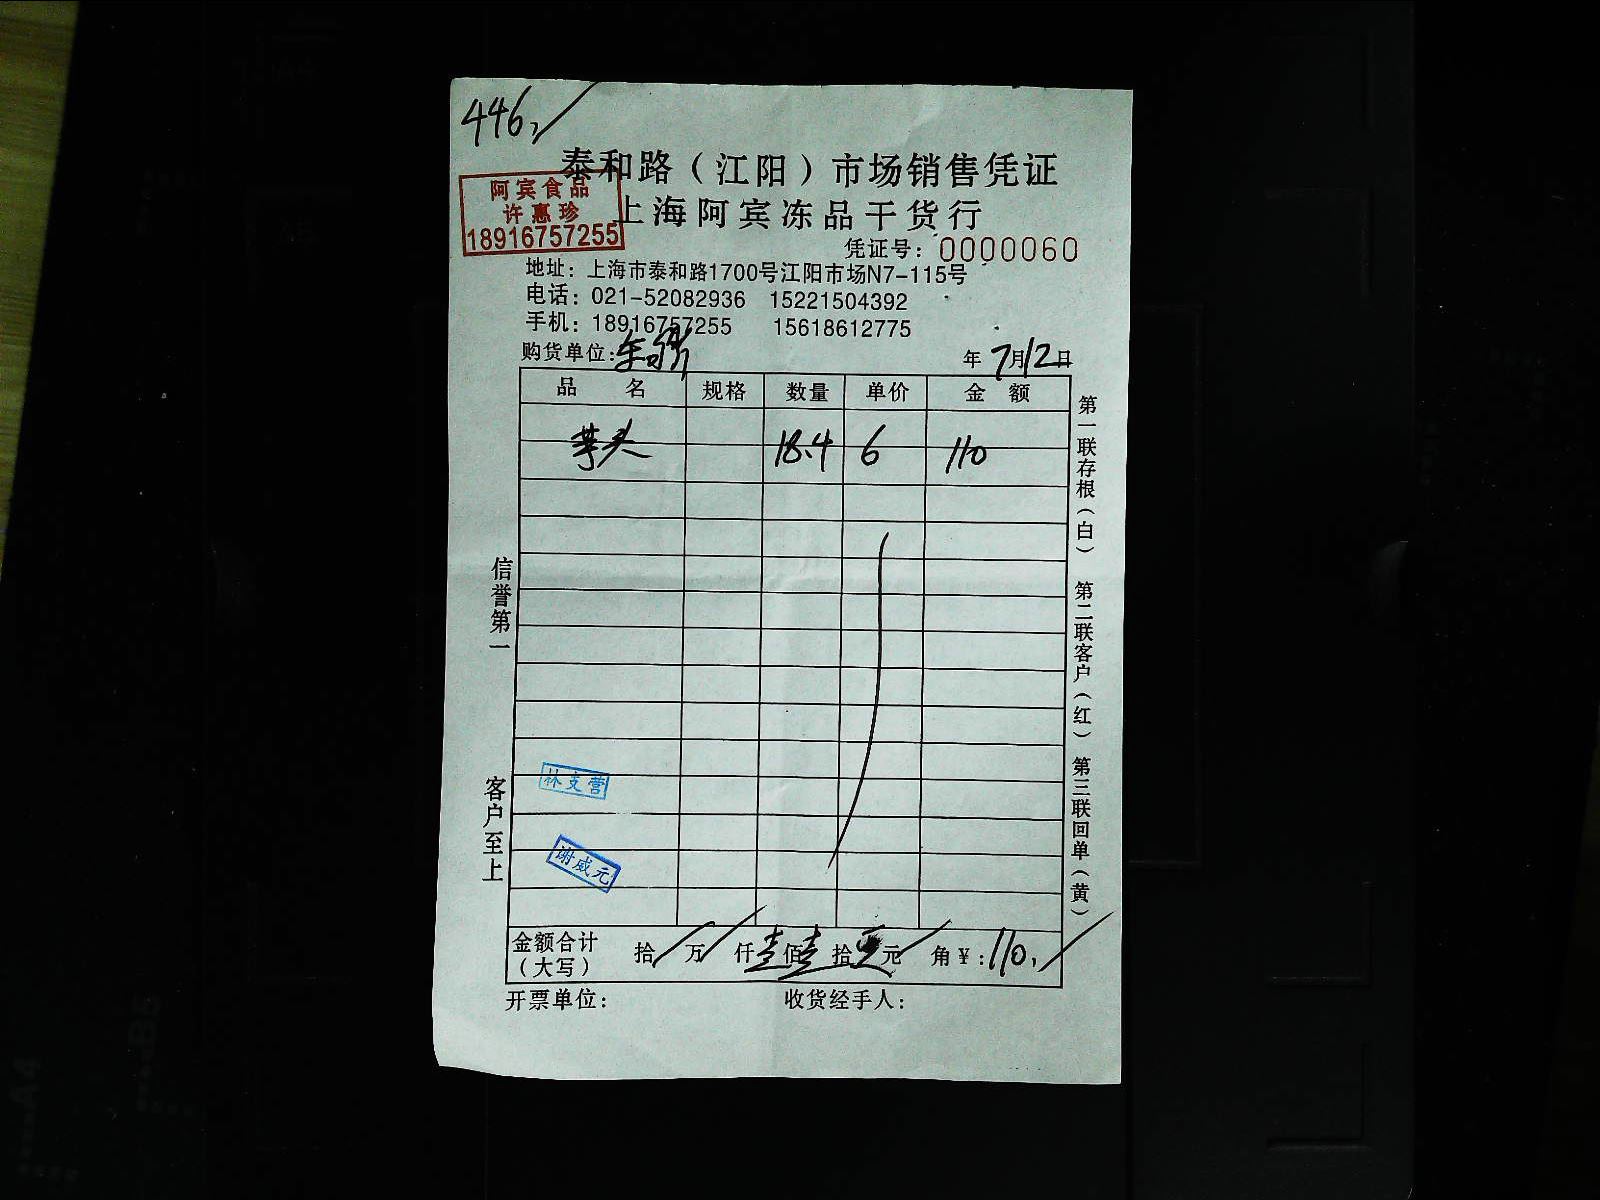 446,
泰和路（江阳）市场销售凭证
阿宾食品
许惠珍
18916757255
上海阿宾冻品干货行
凭证号：0000060
地址：上海市泰和路1700号江阳市场N7-115号
电话：021-52082936 15221504392
手机：18916757255 15618612775
购货单位：
年 7月12日
品名 规格 数量 单价 金额
芋头 18.4 6 110
信誉第一
客户至上
第一联存根（白） 第二联客户（红） 第三联回单（黄）
林支营
谢威元
金额合计（大写） 拾 万 仟 壹佰 壹拾 元 角 ¥：110,
开票单位： 收货经手人：